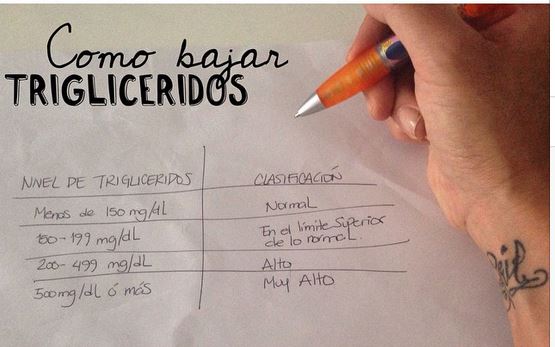 Como bajar
TRIGLICERIDOS
NIVEL DE TRIGLICERIDOS CLASIFICACIÓN
Menos de 150 mg/dl Normal
150-199 mg/dL En el límite Superior
de lo normal.
200-499 mg/dL Alto
500 mg/dL ó más Muy Alto